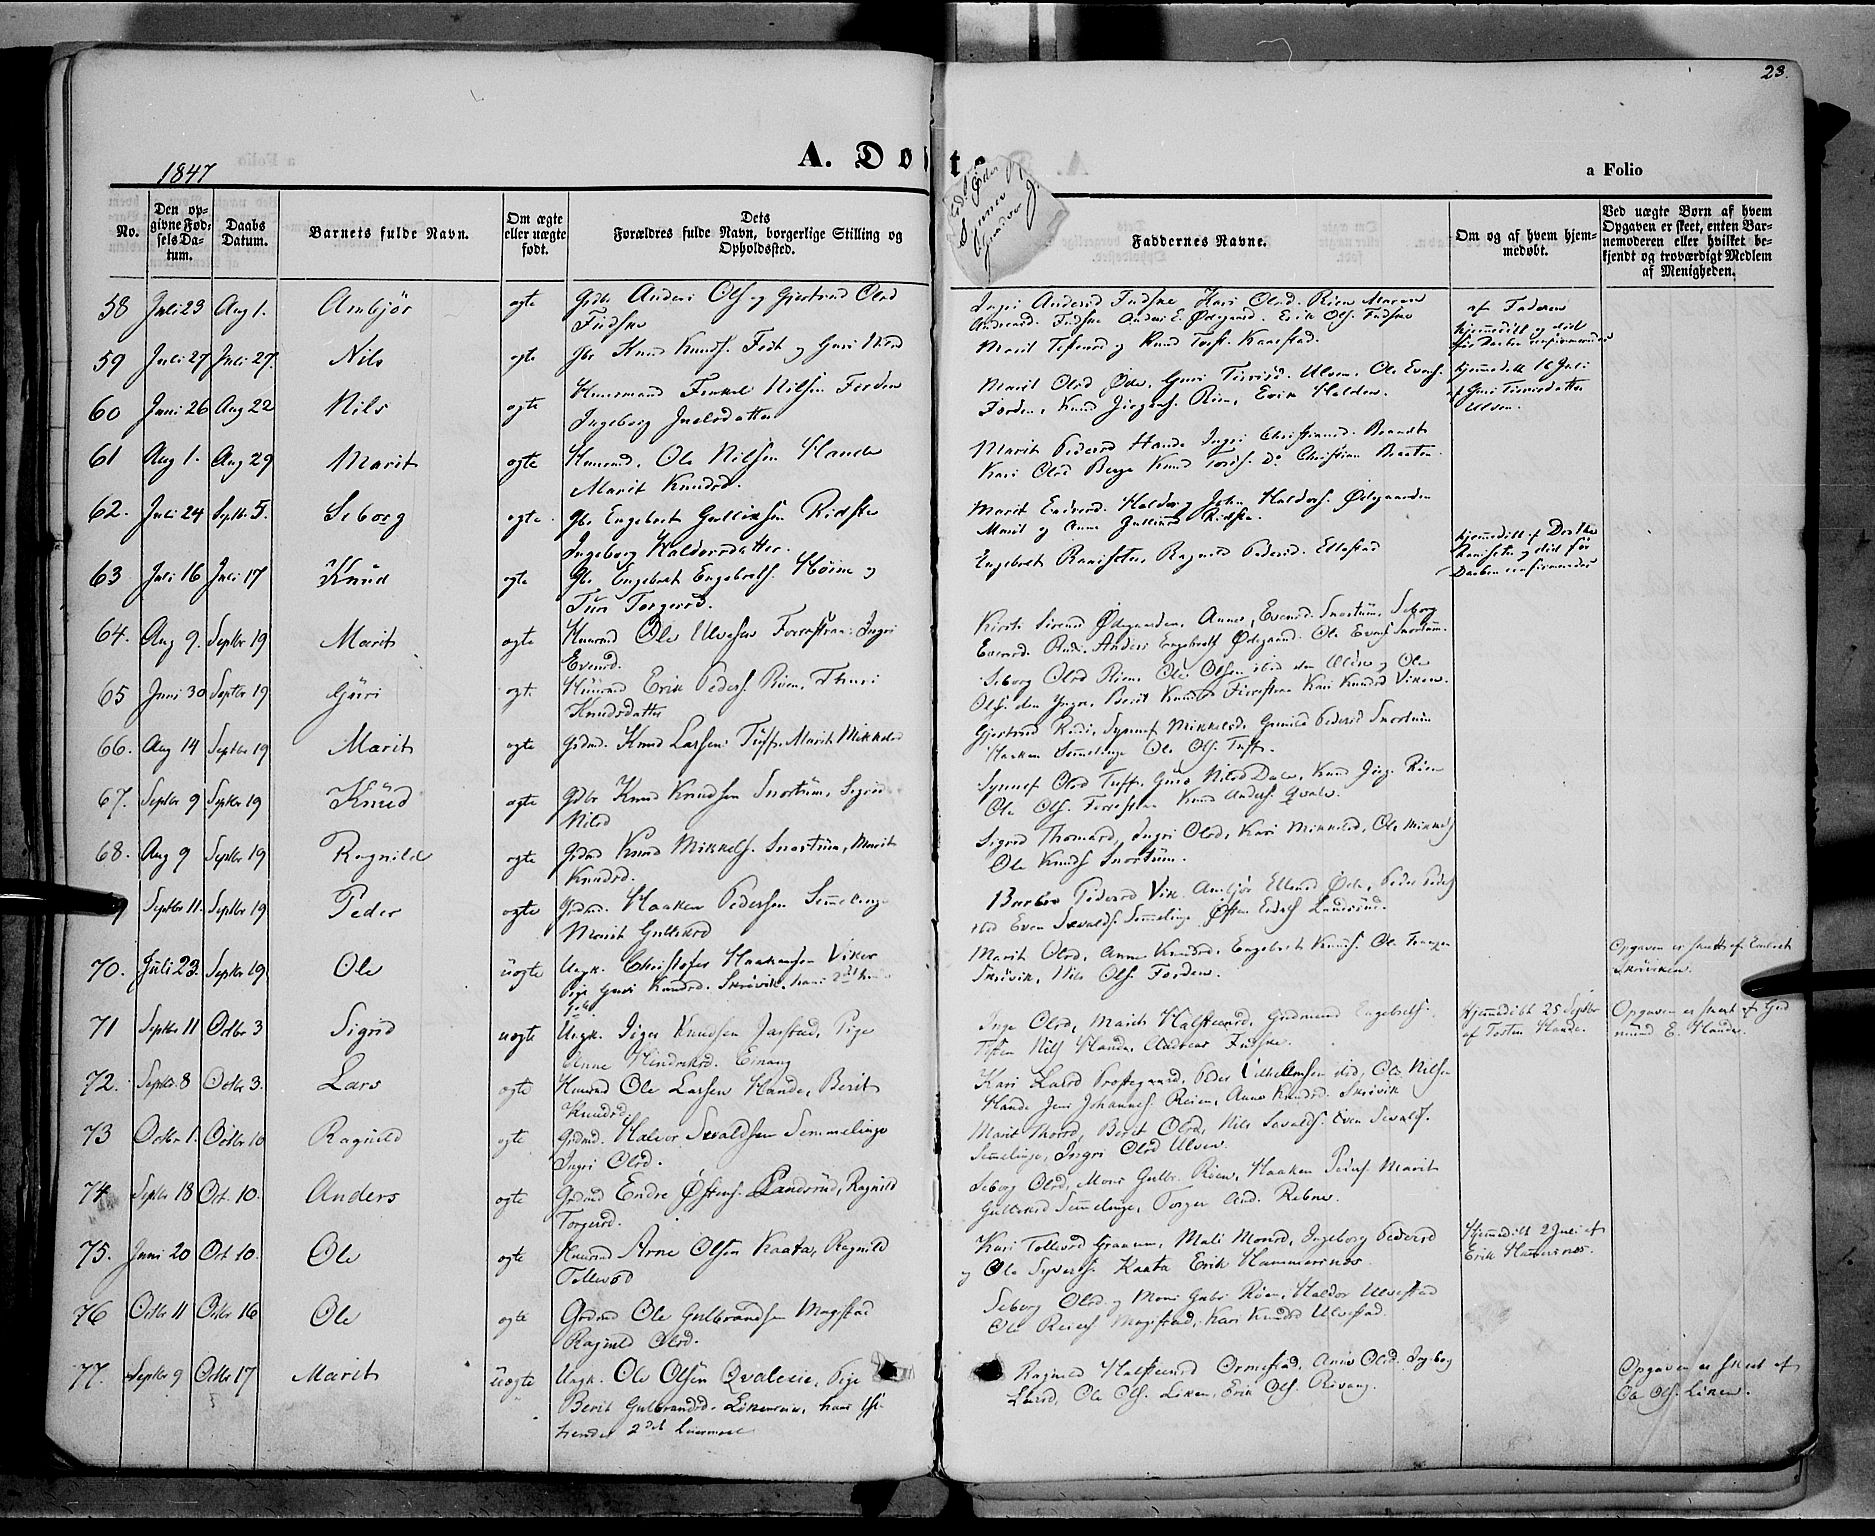 23.
1847
A. Døbte
a Folio
No.
Den op-
givne Fød-
sels Da-
tum.
Daabs
Datum.
Barnets fulde Navn.
Om ægte
eller uægte
født.
Dets
Forældres fulde Navn, borgerlige Stilling og
Opholdssted.
Faddernes Navne.
Om og af hvem hjem-
medøbt.
Ved uægte Børn af hvem
Opgaven er skeet, enten Bar-
nemoderen eller hvilket be-
kjendt og troværdigt Medlem
af Menigheden.
58 Juli 23 Aug 1. Ambjør ægte Gdbr Anders Ols og Gjertrud Olsd
Fudske
Ingri Andersd Fudske Kari Olsd. Rien Maren
Andersd. Fudske Anders E. Ødegaard. Erik Ols. Fudske
af Faderen
59 Juli 27 Juli 27. Nils ægte Gbr Knud Knuds.
Marit Knud Kaastad.
hjemmedøbt og død
før Daaben confirmeredes
60 Juni 26 Aug 22 Nils ægte Huusmand Nilsen Forden
Ingeborg
Marit Olsd Øde, Guri Ulven. Ole Evens.
Forden, Knud Jørgens. Rien, Erik Halden.
hjemmedøbt 16 Juli
af Guri
Ulven.
61 Aug 1. Aug 29 Marit ægte Huusmd. Ole Nilsen Hande
Marit Knudsd.
Marit Pedersd Hande Ingri Christiansd. Brandt
Kari Olsd Berge Knud Do Christian Braaten.
62. Juli 24 Septbr 5. Seborg ægte. Gbr Engebret Gulliksen Ridste
Ingeborg Haldorsdatter.
Marit Endresd. Haldor og John Haldors. Ødegaarden
Marit og Anne Gulliksd Ridste.
63 Juli 16 Juli 17 Knud ægte Gbr Engebret Engebrets. Høime og
Turi Torgersd.
Engebret Ranisten, Ragnild Pedersd. Ellestad
hjemmedøbt af Dorthe
Ranisten og død før
Daaben confirmeredes
64. Aug 9. Septbr 19 Marit ægte Huusmd Ole Ulvesen Forrestran: Ingri
Evensd.
Kirsti Sivensd Ødegaarden, Anne, Evensd. Snortum, Seborg
Evensd. Rudi, Anders Engebrets Ødegaard. Ole Evens Snortum.
65 Juni 30 Septbr 19 Guri ægt. Huusmd Erik Peders. Rien, Thuri
Knudsdatter
Seborg Olsd Rien, Ole Olsen ibid den Eldre og Ole
Ols. den Yngre, Berit Knudsd Forrestran Kari Knudsd Viken.
66. Aug 14 Septbr 19 Marit ægte Grdmd. Knud Larsen Tuft, Marit Mikkelsd
Gjertrud Rudi, Synnef Mikkelsd, Gunild Pedersd Snortum
Haaken Semmelinge Ole Ols. Tuft.
67. Septbr 9 Septbr 19 Knud ægte Gdbr Knud Knudsen Snortum, Sigrid
Nilsd
Synnef Olsd Tuft, Guro Nilsd Dale, Knud Jørg. Rien
Ole Ols. Forrestran Knud Anders. Qvale.
68. Aug 9 Septbr 19 Ragnild ægte Grdmd Knud Mikkels. Snortum, Marit
Knudsd.
Sigrid Thomasd, Ingri Olsd, Kari Mikkelsd, Ole Mikkels
Ole Knuds Snortum.
9 Septbr 11. Septbr 19 Peder ægte Grdmd. Haaken Pedersen Semmelinge
Marit Gulliksd
Barbro Pedersd Vik Ambjør Ellensd Øde, Peder Peders
ibid Even Sevalds. Semmelinge Østen Endres Landsrud.
70. Juli 23. Septbr 19 Ole uægte Ungk. Christofer Haakensen Viker
Pige Guri Knudsd. Skrøvik, hans 2det hendes
1ste
Marit Olsd, Anne Knudsd. Engebret Knuds. Ole
Skrøvik, Nils Ols. Forden.
Opgaven er skeet af Embret
Skrøviken.
71 Septbr 11 Octbr 3 Sigrid uægte Ungk. Siger Knudsen Jarstad, Pige
Anne Hendriksd. Einang
Inge Olsd, Marit Halsteensd, Gudmund Engebrets.
Tosten Nils Hande, Andreas Fudske.
Hjemmedøbt 25 Septbr
af Tosten Hande.
Opgaven er skeet af Gud
mund E. Hande.
72. Septbr 8 Octbr 3. Lars ægte Huusmd Ole Larsen Hande, Berit
Knudsd
Kari Larsd Prestegaard, Peder Vilhelmsen ibid, Ole Nilsen
Hande Jens Johannes. Reien, Anne Knudsd. Skrøvik
73 Octbr 1. Octbr 10 Ragnild ægte Grdmd. Halvor Sevaldsen Semmelinge
Ingri Olsd.
Marit Thorsd, Berit Olsd, Nils Sevalds. Even Sevalds.
Semmelinge, Ingri Olsd Ulven.
74 Septbr 18 Oct. 10. Anders ægte Grdmd Endre Østens. Landsrud, Ragnild
Torgersd.
Seborg Olsd, Mons Gulbr. Rien, Haaken Peders Marit
Gulliksd Semmelinge, Torger And. Rebne.
75. Juni 20 Oct 10. Ole ægte Huusmd Arne Olsen Kaata, Ragnild
Tollevsd
Kari Tollevsd Granum, Mali Monsd, Ingeborg Pedersd
og Ole Syverts. Kaata Erik Hammersnæs
Hjemmedøbt 2 Juli af
Erik Hammersnæs.
76 Octbr 11 Octbr 16 Ole ægte Grdmd Ole Gulbrandsen Magistad
Ragnild Olsd.
Seborg Olsd. og Mons Gulbr Rien, Haldor Ulvestad
Ole Reiers Magistad, Kari Knudsd Ulvestad.
77. Septbr 9 Octbr 17 Marit uægte Ungk. Ole Olsen Qvaleeie, Pige
Berit Gulbrandsd. Lökeneie, hans 1ste
hendes 2det Leiermaal
Ragnild Halsteensd Ormestad, Anne Olsd. Ingeborg
Larsd, Ole Ols. Löken, Erik Ols. Rivang.
Opgaven er skeet af
Ole Ols. Löken.